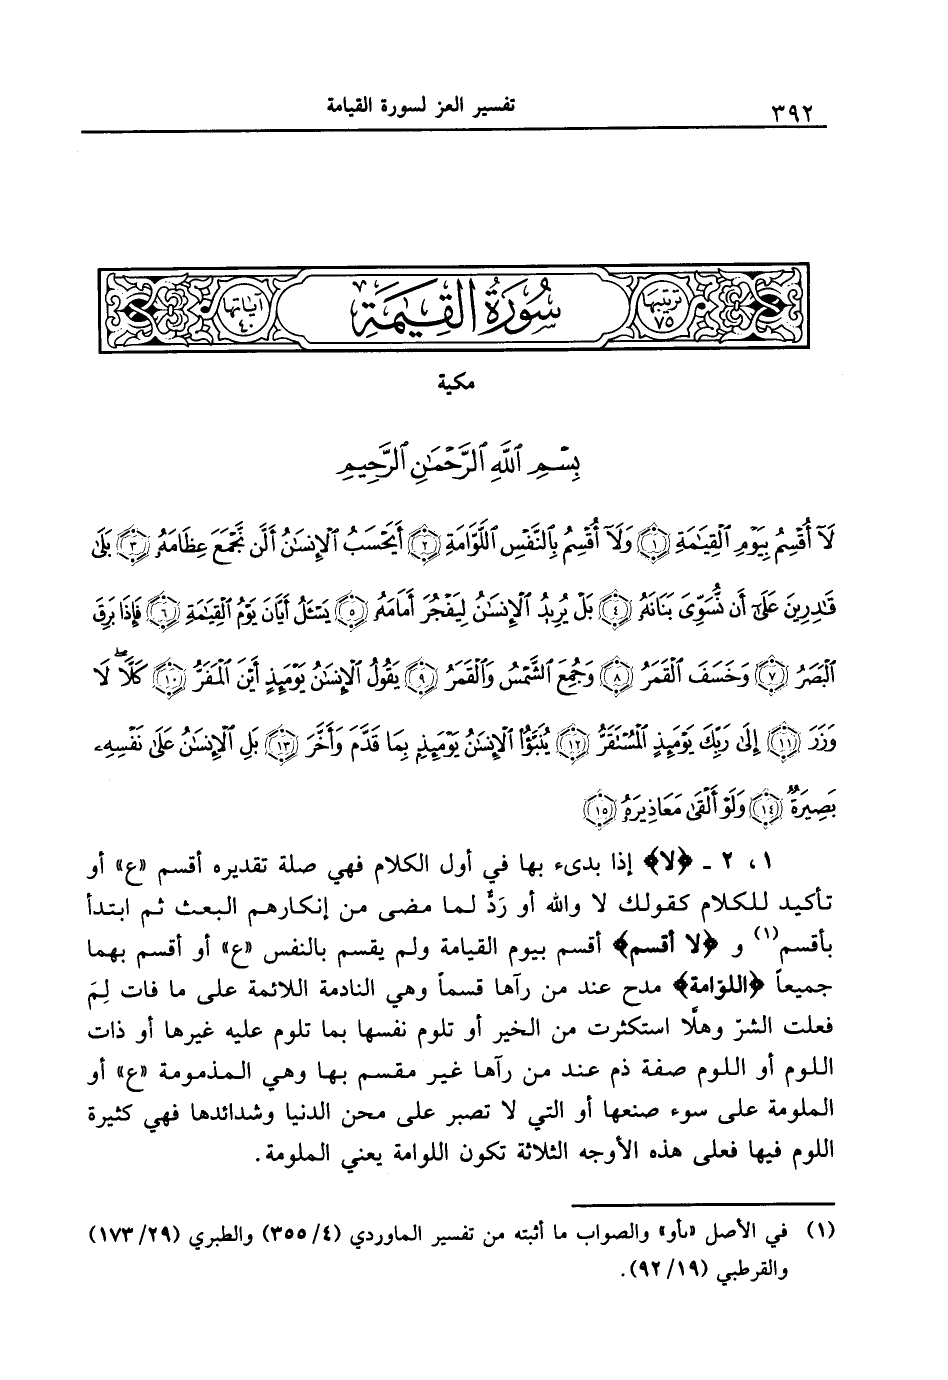 ٣٩٢
تفسير العز لسورة القيامة
ترتيبها ٧٥
سُورَةُ القِيَٰمَةِ
آياتها ٤٠
مكية
بِسْمِ ٱللَّهِ ٱلرَّحْمَٰنِ ٱلرَّحِيمِ
لَآ أُقْسِمُ بِيَوْمِ ٱلْقِيَٰمَةِ ﴿١﴾ وَلَآ أُقْسِمُ بِٱلنَّفْسِ ٱللَّوَّامَةِ ﴿٢﴾ أَيَحْسَبُ ٱلْإِنسَٰنُ أَلَّن نَّجْمَعَ عِظَامَهُۥ ﴿٣﴾ بَلَىٰ
قَٰدِرِينَ عَلَىٰٓ أَن نُّسَوِّىَ بَنَانَهُۥ ﴿٤﴾ بَلْ يُرِيدُ ٱلْإِنسَٰنُ لِيَفْجُرَ أَمَامَهُۥ ﴿٥﴾ يَسْـَٔلُ أَيَّانَ يَوْمُ ٱلْقِيَٰمَةِ ﴿٦﴾ فَإِذَا بَرِقَ
ٱلْبَصَرُ ﴿٧﴾ وَخَسَفَ ٱلْقَمَرُ ﴿٨﴾ وَجُمِعَ ٱلشَّمْسُ وَٱلْقَمَرُ ﴿٩﴾ يَقُولُ ٱلْإِنسَٰنُ يَوْمَئِذٍ أَيْنَ ٱلْمَفَرُّ ﴿١٠﴾ كَلَّا لَا
وَزَرَ ﴿١١﴾ إِلَىٰ رَبِّكَ يَوْمَئِذٍ ٱلْمُسْتَقَرُّ ﴿١٢﴾ يُنَبَّؤُا۟ ٱلْإِنسَٰنُ يَوْمَئِذٍۭ بِمَا قَدَّمَ وَأَخَّرَ ﴿١٣﴾ بَلِ ٱلْإِنسَٰنُ عَلَىٰ نَفْسِهِۦ
بَصِيرَةٌ ﴿١٤﴾ وَلَوْ أَلْقَىٰ مَعَاذِيرَهُۥ ﴿١٥﴾
١، ٢ ـ ﴿لا﴾ إذا بدىء بها في أول الكلام فهي صلة تقديره أقسم «ع» أو
تأكيد للكلام كقولك لا والله أو رَدٌّ لما مضى من إنكارهم البعث ثم ابتدأ
بأقسم(١) و ﴿لا أقسم﴾ أقسم بيوم القيامة ولم يقسم بالنفس «ع» أو أقسم بهما
جميعاً ﴿اللوّامة﴾ مدح عند من رآها قسماً وهي النادمة اللائمة على ما فات لِمَ
فعلت الشرّ وهلَّا استكثرت من الخير أو تلوم نفسها بما تلوم عليه غيرها أو ذات
اللوم أو اللوم صفة ذم عند من رآها غير مقسم بها وهي المذمومة «ع» أو
الملومة على سوء صنعها أو التي لا تصبر على محن الدنيا وشدائدها فهي كثيرة
اللوم فيها فعلى هذه الأوجه الثلاثة تكون اللوامة يعني الملومة.
(١) في الأصل «بأو» والصواب ما أثبته من تفسير الماوردي (٤/ ٣٥٥) والطبري (٢٩/ ١٧٣)
والقرطبي (١٩/ ٩٢).